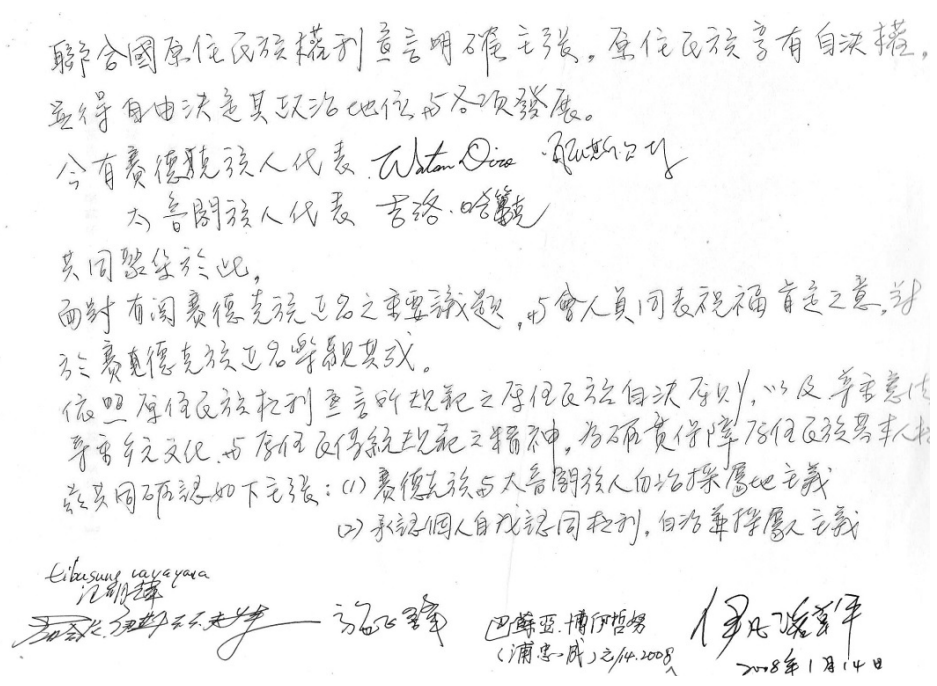 聯合國原住民族權利宣言明確主張，原住民族享有自決權，
並得自由決定其政治地位與各項發展。
今有賽德克族人代表 Watan Diro
太魯閣族人代表 吉洛·哈簍克
共同聚集於此，
面對有關賽德克族正名之重要議題，與會人員同表祝福肯定之意，對
於賽德克族正名樂觀其成。
依照原住民族權利宣言所規範之原住民族自決原則，以及尊重憲法
尊重多元文化，與原住民傳統規範之精神，為確實保障原住民族基本人權
茲共同確認如下主張：(1) 賽德克族與太魯閣族人自治採屬地主義
(2) 承認個人自我認同權利，自治兼採屬人主義
tibusung
汪明輝
施正鋒
巴蘇亞·博伊哲努
(浦忠成) 1/14.2008
伊凡諾幹
2008年1月14日